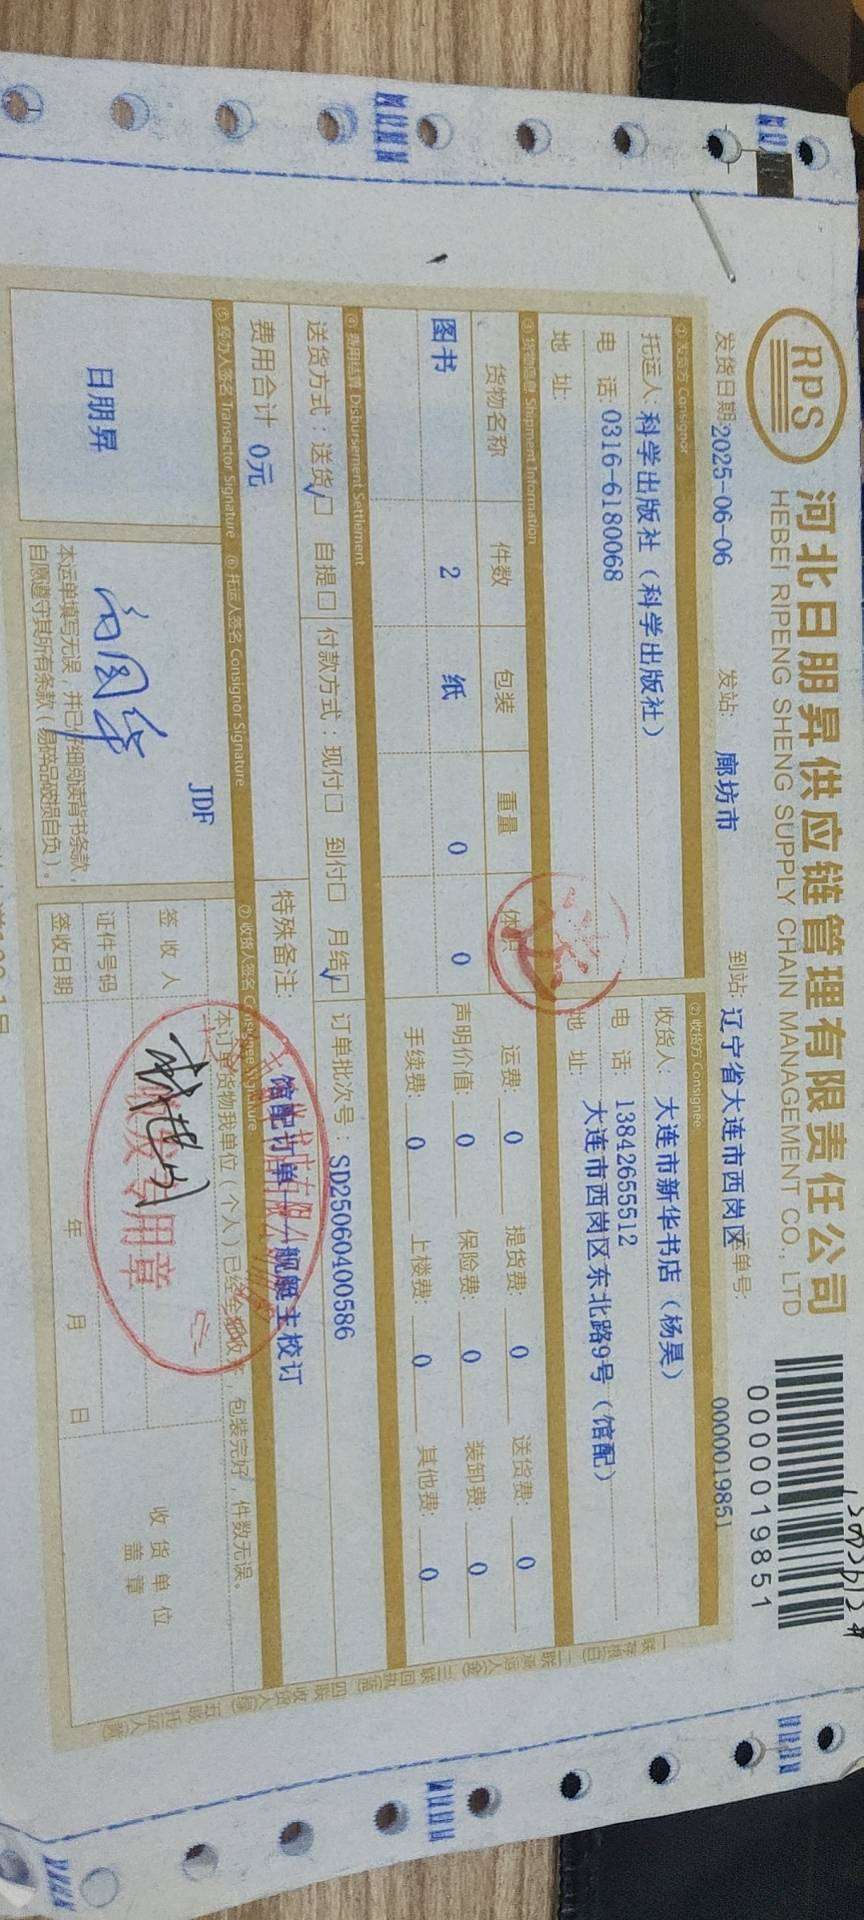 RPS
河北日朋昇供应链管理有限责任公司
HEBEI RIPENG SHENG SUPPLY CHAIN MANAGEMENT CO., LTD
0000019851
发货日期 2025-06-06 发站: 廊坊市 到站: 辽宁省大连市西岗区 单号: 0000019851
①发货方 Consignor ②收货方 Consignee
托运人: 科学出版社（科学出版社） 收货人: 大连市新华书店（杨昊）
电 话: 0316-6180068 电 话: 13842655512
地 址: 地 址: 大连市西岗区东北路9号（馆配）
③货物信息 Shipment Information
货物名称 件数 包装 重量 体积 运费: 0 提货费: 0 送货费: 0
图书 2 纸 0 0 声明价值: 0 保险费: 0 装卸费: 0
手续费: 0 上楼费: 0 其他费: 0
④费用结算 Disbursement Settlement
送货方式: 送货□√ 自提□ 付款方式: 现付□ 到付□ 月结□√ 订单批次号: SD25060400586
费用合计 0元 特殊备注: 馆配订单——舰艇主校订
⑤经办人签名 Transactor Signature ⑥托运人签名 Consignor Signature ⑦收货人签名 Consignee Signature
日朋昇
JDF
本运单填写无误，并已仔细阅读背书条款，
自愿遵守其所有条款（易碎品破损自负）。
本订单货物我单位（个人）已经全部收好，包装完好，件数无误。
签 收 人
证件号码
签收日期 年 月 日
收货单位
盖 章
用章